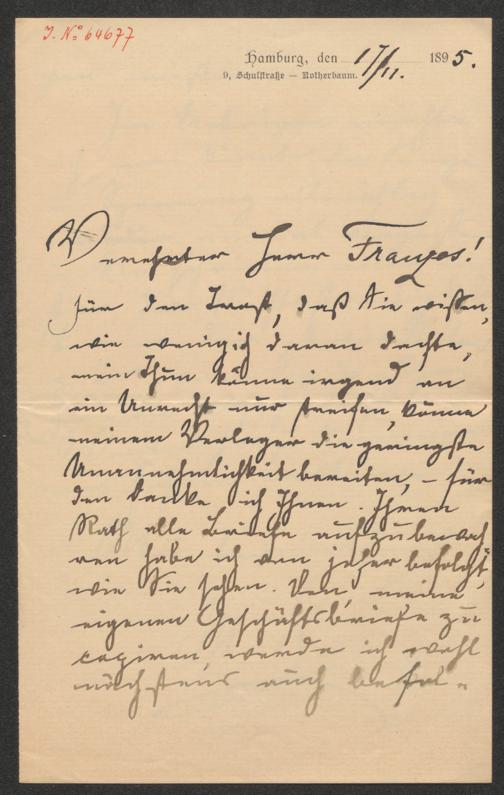 J. No 64677
Hamburg, den 17/11. 1895.
9, Schulstraße — Rotherbaum.
Verehrter Herr Franzos!
für den Trost, daß Sie wissen,
wie wenig ich daran dachte,
mein Thun könne irgend an
ein Unrecht nur streifen, könne
meinem Verleger die geringste
Unannehmlichkeit bereiten, – für
den danke ich Ihnen. Ihren
Rath alle Briefe aufzubewah
ren habe ich von jeher befolgt,
wie Sie sehen. Den, meine
eigenen Geschäftsbriefe zu
copiren, werde ich wohl
nächstens auch befol-